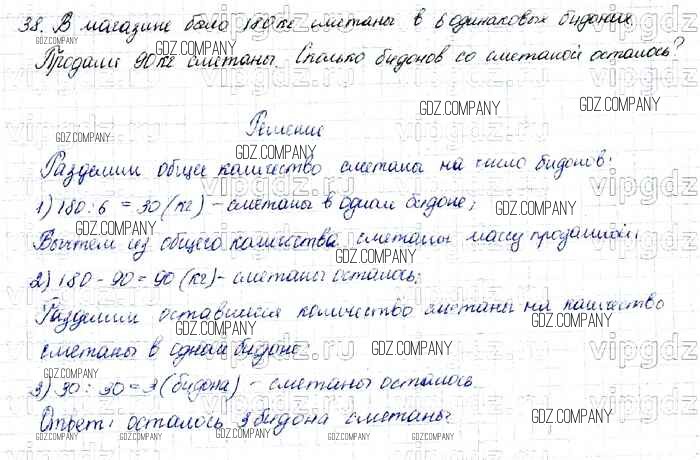 38. В магазине было 180 кг сметаны в 6 одинаковых бидонах.
Продали 90 кг сметаны. Сколько бидонов со сметаной осталось?
Решение
Разделим общее количество сметаны на число бидонов:
1) 180 : 6 = 30 (кг) - сметаны в одном бидоне;
Вычтем из общего количества сметаны массу проданной:
2) 180 - 90 = 90 (кг) - сметаны осталось;
Разделим оставшееся количество сметаны на количество
сметаны в одном бидоне:
3) 90 : 30 = 3 (бидона) - сметаны осталось.
Ответ: осталось 3 бидона сметаны.